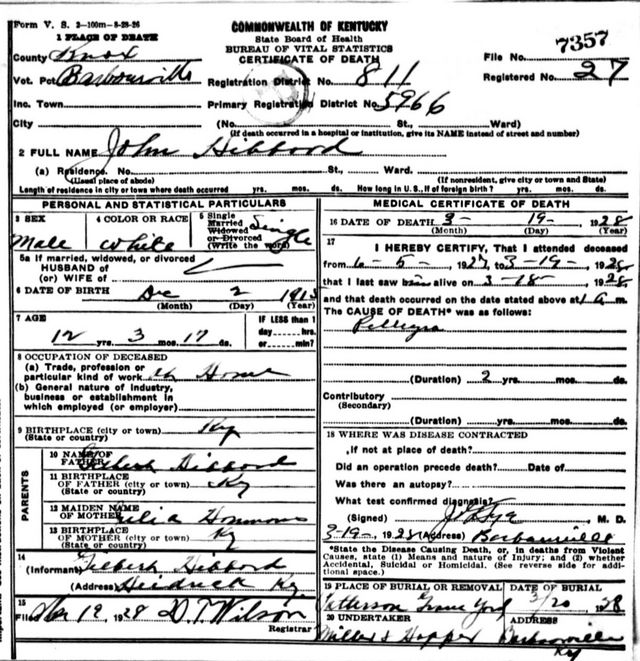 Form V. S. 2–100m–8-23-26
COMMONWEALTH OF KENTUCKY
State Board of Health
BUREAU OF VITAL STATISTICS
CERTIFICATE OF DEATH
1 PLACE OF DEATH
County Knox
File No. 7357
Vot. Pct Barbourville
Registration District No. 811
Registered No. 27
Inc. Town
Primary Registration District No. 5966
City (No. St., Ward)
(If death occurred in a hospital or institution, give its NAME instead of street and number)
2 FULL NAME John Hibbord
(a) Residence. No. St., Ward.
(Usual place of abode) (If nonresident, give city or town and State)
Length of residence in city or town where death occurred yrs. mos. ds. How long in U. S., if of foreign birth? yrs. mos. ds.
PERSONAL AND STATISTICAL PARTICULARS
3 SEX Male
4 COLOR OR RACE White
5 Single
Married
Widowed
or Divorced
(Write the word) Single
5a If married, widowed, or divorced
HUSBAND of
(or) WIFE of
6 DATE OF BIRTH Dec 2 1915
(Month) (Day) (Year)
7 AGE
IF LESS than 1
day......hrs.
or......min?
12 yrs. 3 mos. 17 ds.
8 OCCUPATION OF DECEASED
(a) Trade, profession or
particular kind of work at Home
(b) General nature of Industry,
business or establishment in
which employed (or employer)
9 BIRTHPLACE (city or town) Ky
(State or country)
PARENTS
10 NAME OF
FATHER Hibbord
11 BIRTHPLACE
OF FATHER (city or town) Ky
(State or country)
12 MAIDEN NAME
OF MOTHER Julia Hammons
13 BIRTHPLACE
OF MOTHER (city or town) Ky
(State or country)
14
(Informant) Hibbord
(Address) Heidrick Ky
15
Filed 19, 1928 D. T. Wilson
Registrar
MEDICAL CERTIFICATE OF DEATH
16 DATE OF DEATH 3- 19- 1928
(Month) (Day) (Year)
17
I HEREBY CERTIFY, That I attended deceased
from 6-5-, 1927, to 3-19-, 1928
that I last saw him alive on 3-18-, 1928
and that death occurred on the date stated above at 1 a m.
The CAUSE OF DEATH* was as follows:
Pellegra
(Duration) 2 yrs. mos. ds.
Contributory
(Secondary)
(Duration) yrs. mos. ds.
18 WHERE WAS DISEASE CONTRACTED
if not at place of death?
Did an operation precede death? Date of
Was there an autopsy?
What test confirmed diagnosis?
(Signed) M. D.
3-19-, 1928 (Address) Barbourville
*State the Disease Causing Death, or, in deaths from Violent
Causes, state (1) Means and nature of Injury; and (2) whether
Accidental, Suicidal or Homicidal. (See reverse side for addi-
tional space.)
19 PLACE OF BURIAL OR REMOVAL DATE OF BURIAL
Patterson Grave Yard 3/20 1928
20 UNDERTAKER ADDRESS
Miller & Hopper Barbourville
Ky